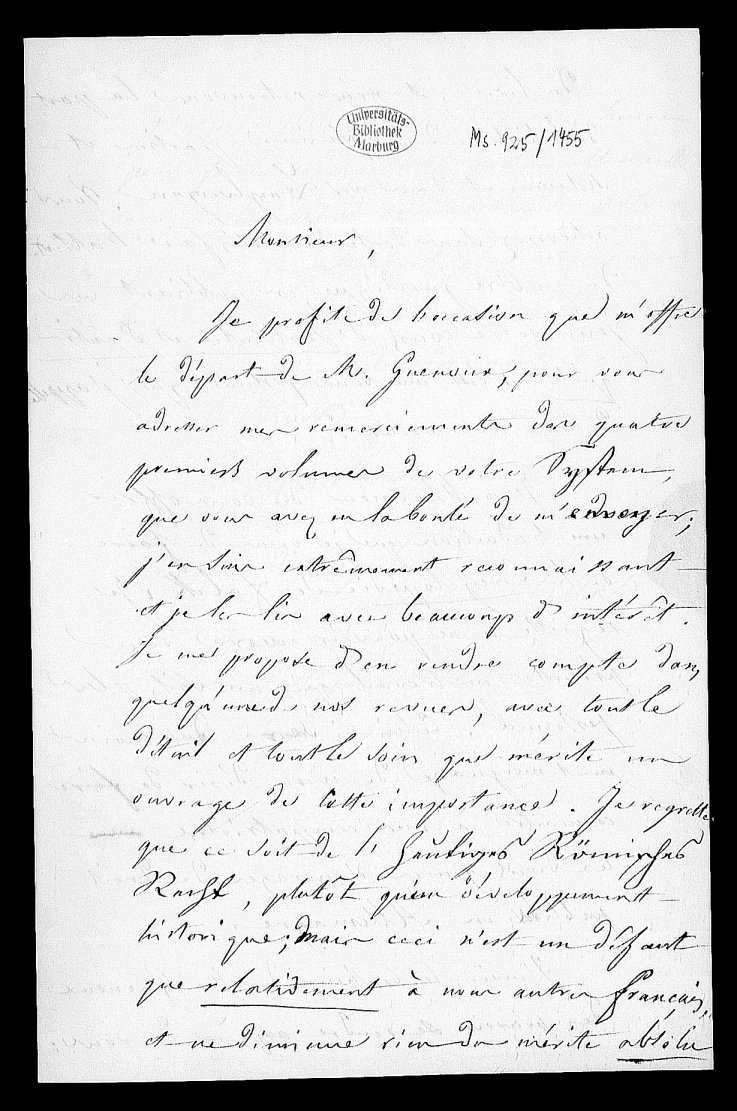 Universitäts-
Bibliothek
Marburg
Ms. 925/1455
Monsieur,
Je profite de l'occasion que m'offre
le départ de M. Guenoux, pour vous
adresser mes remerciements des quatre
premiers volumes de votre System,
que vous avez eu la bonté de m'envoyer;
j'en suis extrêmement reconnaissant
et je les lis avec beaucoup d'intérêt.
Je me propose d'en rendre compte dans
quelqu'une de nos revues, avec tout le
détail et tout le soin que mérite un
ouvrage de cette importance. Je regrette
que ce soit de l'heutiges Römisches
Recht, plutôt qu'un développement
historique; mais ceci n'est un défaut
que relativement à nous autres français,
et ne diminue rien du mérite absolu